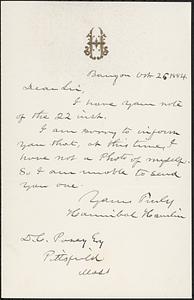 Bangor Oct 26 1884.
Dear Sir,
I have your note
of the 22 inst.
I am sorry to inform
you that, at this time, I
have not a Photo of myself.
So I am unable to send
you one.
Yours Truly
Hannibal Hamlin
D. C. Esq
Pittsfield
Mass